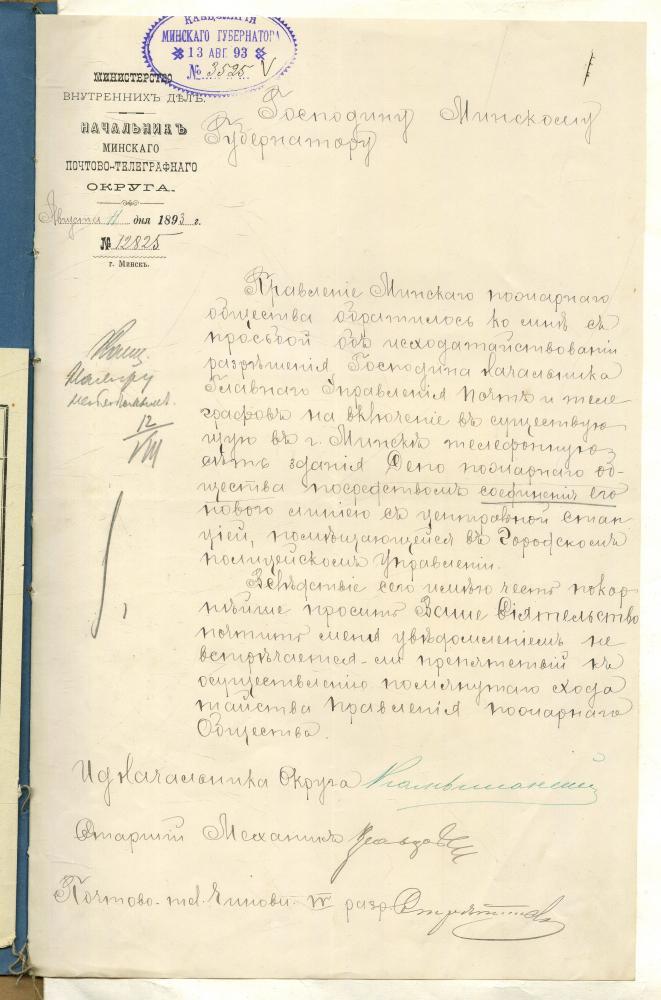 КАНЦЕЛЯРІЯ
МИНСКАГО ГУБЕРНАТОРА
13 АВГ. 93
№ 3525
МИНИСТЕРСТВО
ВНУТРЕННИХЪ ДѢЛЪ.
НАЧАЛЬНИКЪ
МИНСКАГО
ПОЧТОВО-ТЕЛЕГРАФНАГО
ОКРУГА.
Августа 11 дня 1893 г.
№ 12825
г. Минскъ.
Господину Минскому
Губернатору
Правленіе Минскаго пожарнаго
общества обратилось ко мнѣ съ
просьбой объ исходатайствованіи
разрѣшенія Господина Начальника
Главнаго Управленія Почтъ и теле
графовъ на включеніе въ существую
щую въ г. Минскѣ телефонную
сѣть зданія Депо пожарнаго об-
щества посредствомъ соединенія его
нового линіею съ центральной стан
ціей, помѣщающейся въ Городскомъ
полицейскомъ Управленіи.
Вслѣдствіе сего имѣю честь покор
нѣйше просить Ваше Сіятельство
почтить меня увѣдомленіемъ не
встрѣчается-ли препятствій къ
осуществленію помянутаго хода
тайства Правленія пожарнаго
Общества.
12
VIII
И д Начальника Округа
Старшій Механикъ
Почтово-тел. Чиновн. IV разр.